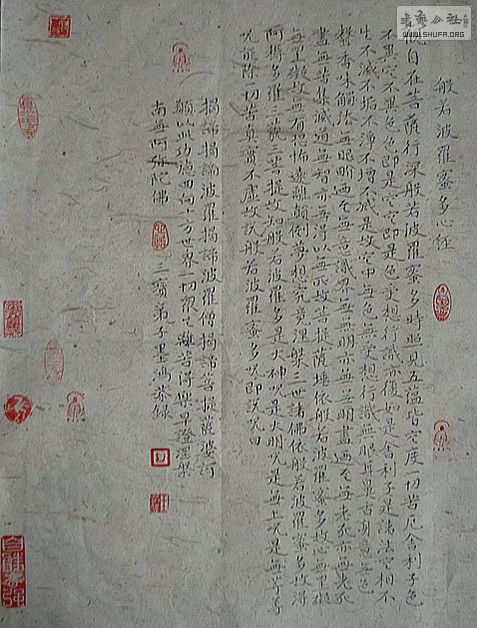 般若波羅蜜多心経
觀自在菩薩行深般若波羅蜜多時照見五蕴皆空度一切苦厄舍利子色
不異空不異色色即是空空即是色受想行識亦復如是舍利子是諸法空相不
生不滅不垢不淨不增不減是故空中無色無受想行識無眼耳鼻舌身意無色
聲香味觸法無眼界乃至無意識界無無明亦無無明盡乃至無老死亦無老死
盡無苦集滅道無智亦無得以無所得故菩提薩埵依般若波羅蜜多故心無罣礙
無罣礙故無有恐怖遠離顛倒夢想究竟涅槃三世諸佛依般若波羅蜜多故得
阿耨多羅三藐三菩提故知般若波羅蜜多是大神咒是大明咒是無上咒是無等等
咒能除一切苦真實不虛故説般若波羅蜜多咒即説咒曰
揭諦揭諦波羅揭諦波羅僧揭諦菩提薩婆訶
願以此功施回向十方世界一切眾生離苦得樂早證涅槃
南無阿弥陀佛
三寶弟子墨鴻恭録
WWW.SHUFA.ORG